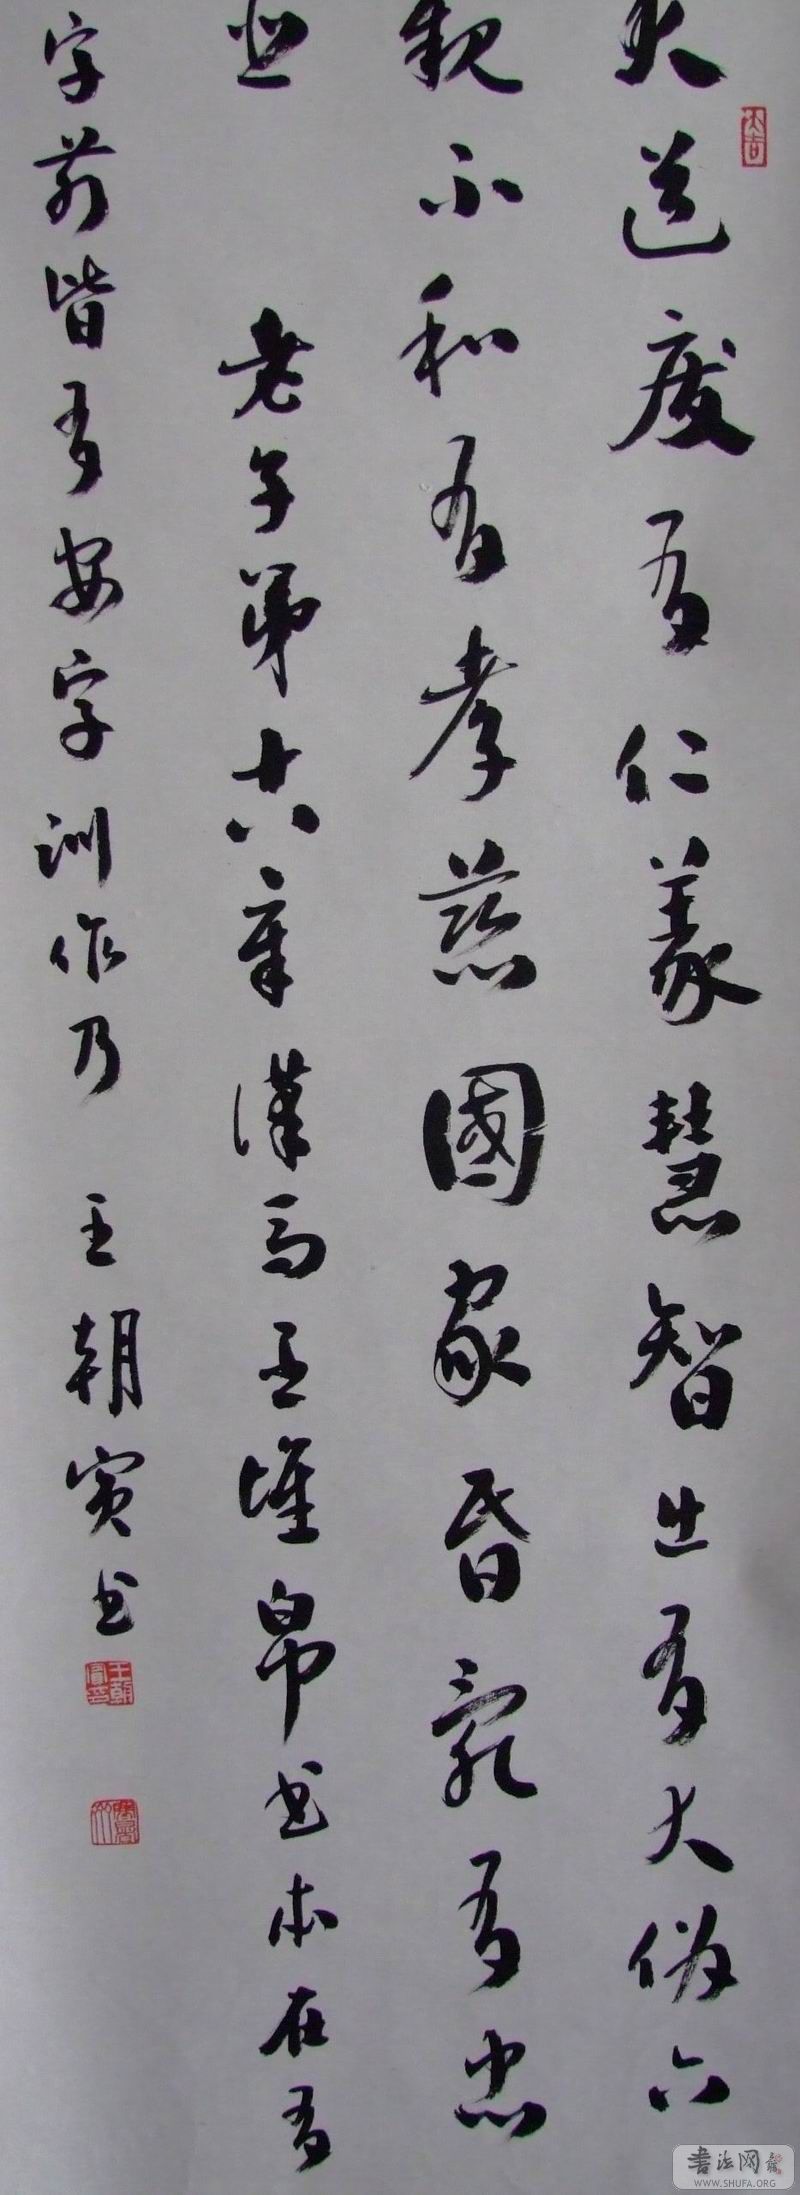 大道废有仁義慧智出有大偽六
親不和有孝慈國家昏乱有忠
臣
老子第十八章漢馬王堆帛书本在有
字前皆有安字训作乃 王朝宾书
王朝賓印
书法网
WWW.SHUFA.ORG